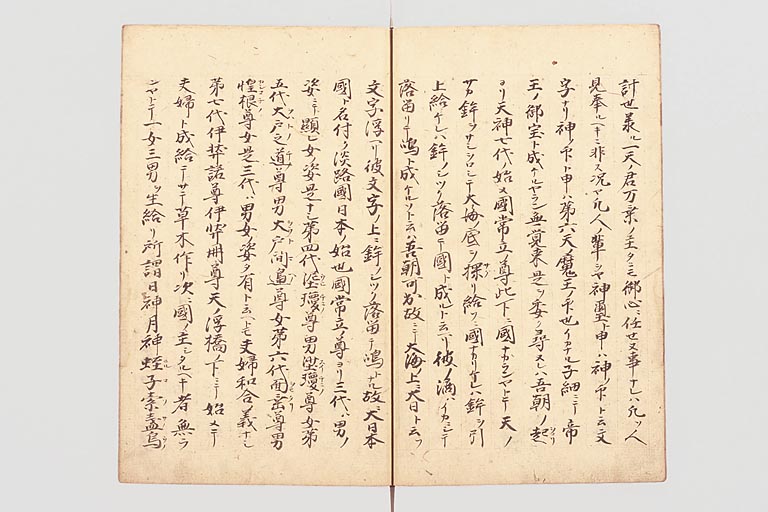 計世最ル一天ノ君万乗ノ主タニモ御心ニ任セヌ事ナレハ凡ツ人
見奉ルヘキニ非ス況ヤ凡人ノ輩シヤ神璽ト申ハ神ノ下ト云文
字ナリ神ノ下ト申ハ第六天ノ魔王ノ下也イカナル子細ニテ帝
王ノ御宝ト成ケルヤラン無覚束是ヲ委ク尋ヌレハ吾朝ノ起
ヨリ天神七代始メ國常立ノ尊此下ニ國ナカランヤトテ天ノ
サカ鉾ヲサシヲロシテ大海ノ底ヲ探リ給フ國ナカリケレハ鉾ヲ引
上給ケレハ鉾ノシツク落留テ國ト成ルト云ヘリ彼ノ滴イカニシテ
落留リテ嶋ト成ケルソト云ハ吾朝可出故ニ大海ノ上ニ大日ト云フ
文字浮ヘリ彼文字ノ上ニ鉾ノシツク落留テ嶋トナル故ニ大日本
國ト名付ク淡路國日本ノ始也國常立ノ尊ヨリ三代ハ男ノ
姿ニテ顕レ女ノ姿是ナシ第四代埿瓊尊男沙瓊尊女第
五代大戸之道尊男大戸間邊尊女第六代面垂尊男
惶根尊女是三代ハ男女姿タ有ト云ヘトモ夫婦和合ノ義ナシ
第七代伊弉諾尊伊弉冊尊天ノ浮橋ノ下ニテ始メテ
夫婦ト成給テケサテ草木作リ次ニ國ノ主シタルヘキ者無ラ
ンヤトテ一女三男ヲ生給リ所謂日神月神蛭子素盞烏